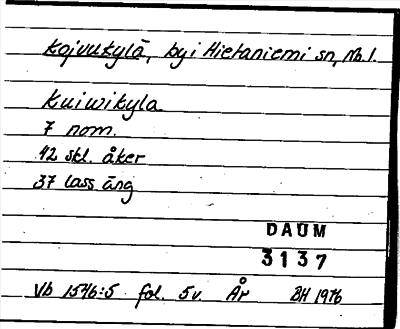 Kojvukylä, by i Hietaniemi sn, Nb.l.
Kuiwikyla
7 nom.
42 skl. åker
37 lass äng
DAUM
3137
Vb 1546:5 fol. 5v. År BH 1976